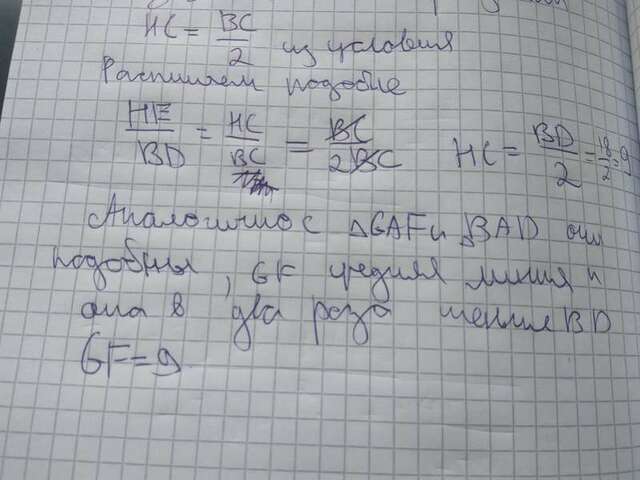 HC = BC/2 из условия
Распишем подобие
HE/BD = HC/BC = BC/2BC HC = BD/2 = 18/2 = 9
Аналогично с △GAF и △BAD они
подобны, GF средняя линия и
она в два раза меньше BD
GF = 9